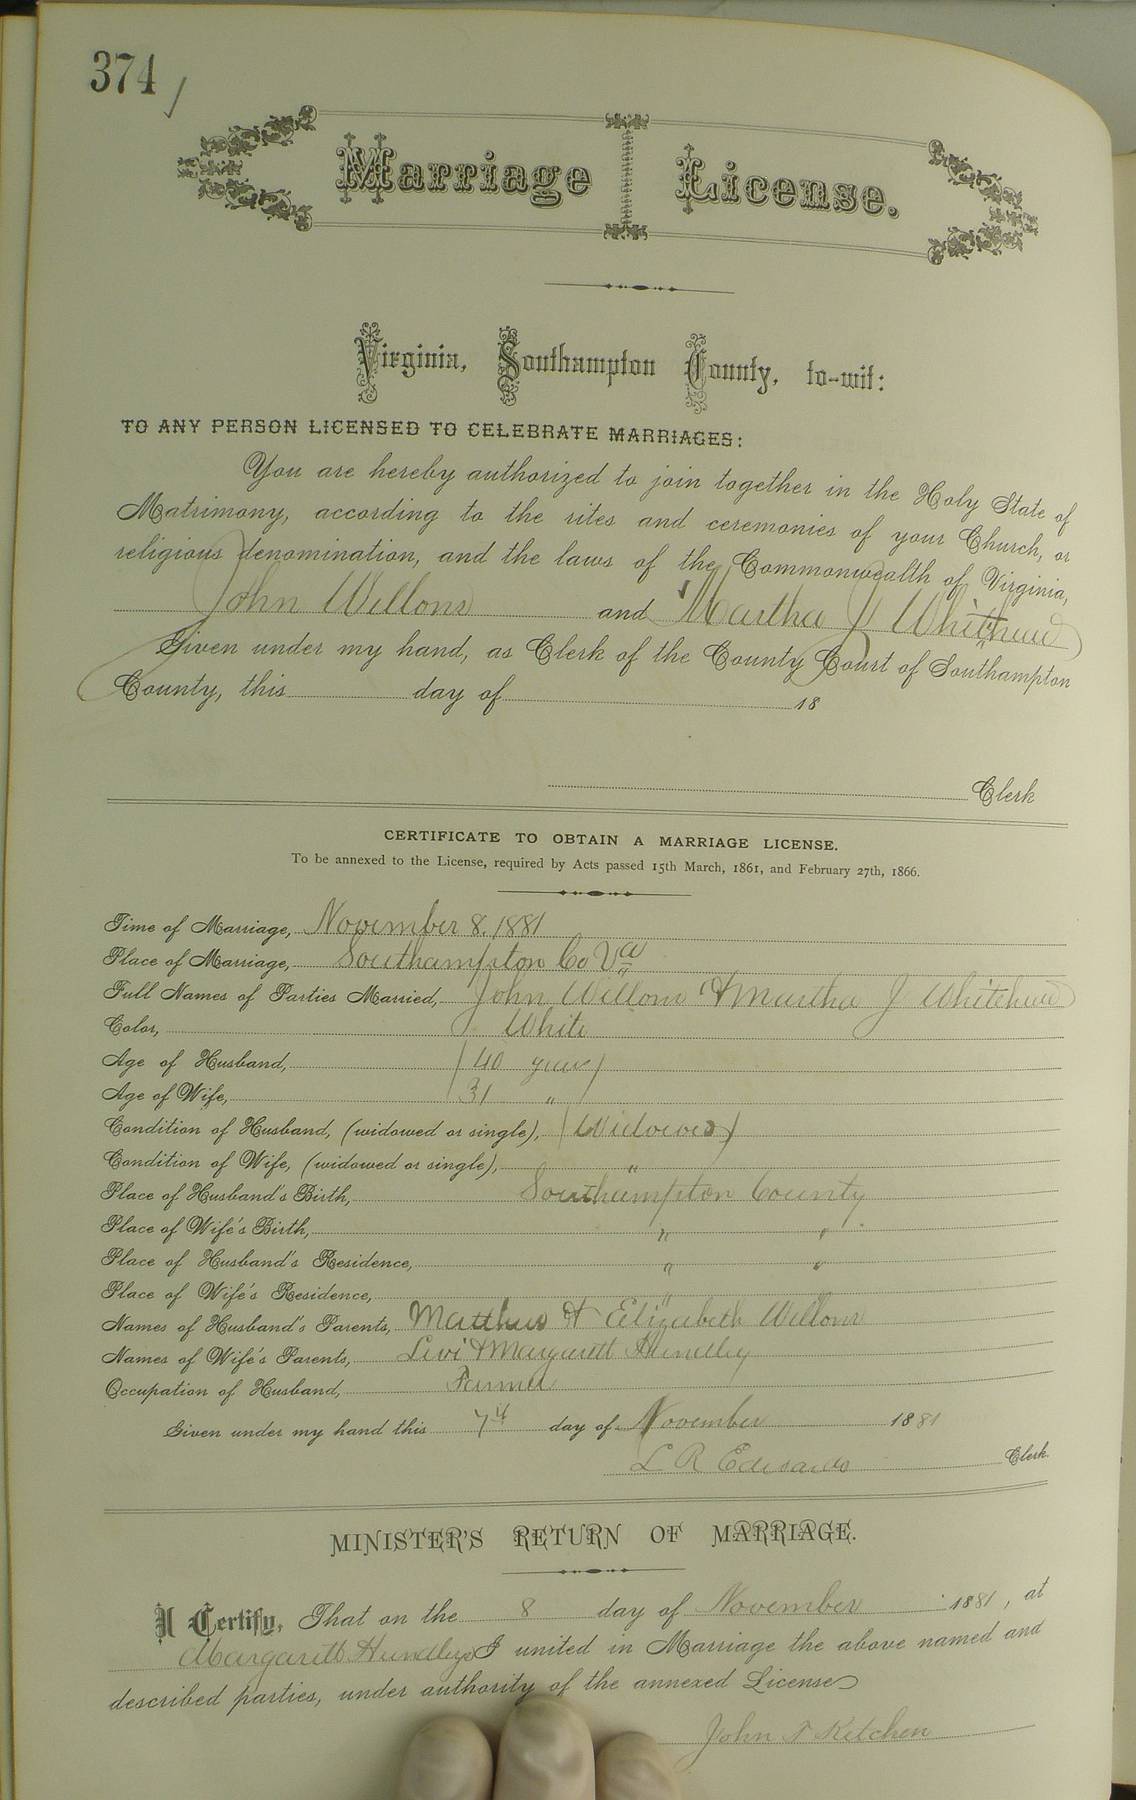 374
Marriage License.
Virginia, Southampton County, to-wit:
TO ANY PERSON LICENSED TO CELEBRATE MARRIAGES:
You are hereby authorized to join together in the Holy State of
Matrimony, according to the rites and ceremonies of your Church, or
religious denomination, and the laws of the Commonwealth of Virginia,
John Wellons and Martha J Whitehead
Given under my hand, as Clerk of the County Court of Southampton
County, this day of 18
Clerk
CERTIFICATE TO OBTAIN A MARRIAGE LICENSE.
To be annexed to the License, required by Acts passed 15th March, 1861, and February 27th, 1866.
Time of Marriage, November 8. 1881
Place of Marriage, Southampton Co Va
Full Names of Parties Married, John Wellons & Martha J Whitehead
Color, White
Age of Husband, 40 years
Age of Wife, 31 "
Condition of Husband, (widowed or single), Widowed
Condition of Wife, (widowed or single), "
Place of Husband's Birth, Southampton County
Place of Wife's Birth, " "
Place of Husband's Residence, " "
Place of Wife's Residence, " "
Names of Husband's Parents, Matthew & Elizabeth Wellons
Names of Wife's Parents, Levi & Margarett Hundley
Occupation of Husband, Farmer
Given under my hand this 7th day of November 1881
L R Edwards Clerk.
MINISTER'S RETURN OF MARRIAGE.
I Certify, That on the 8 day of November 1881, at
Margarett Hundleys I united in Marriage the above named and
described parties, under authority of the annexed License
John F Kitchen